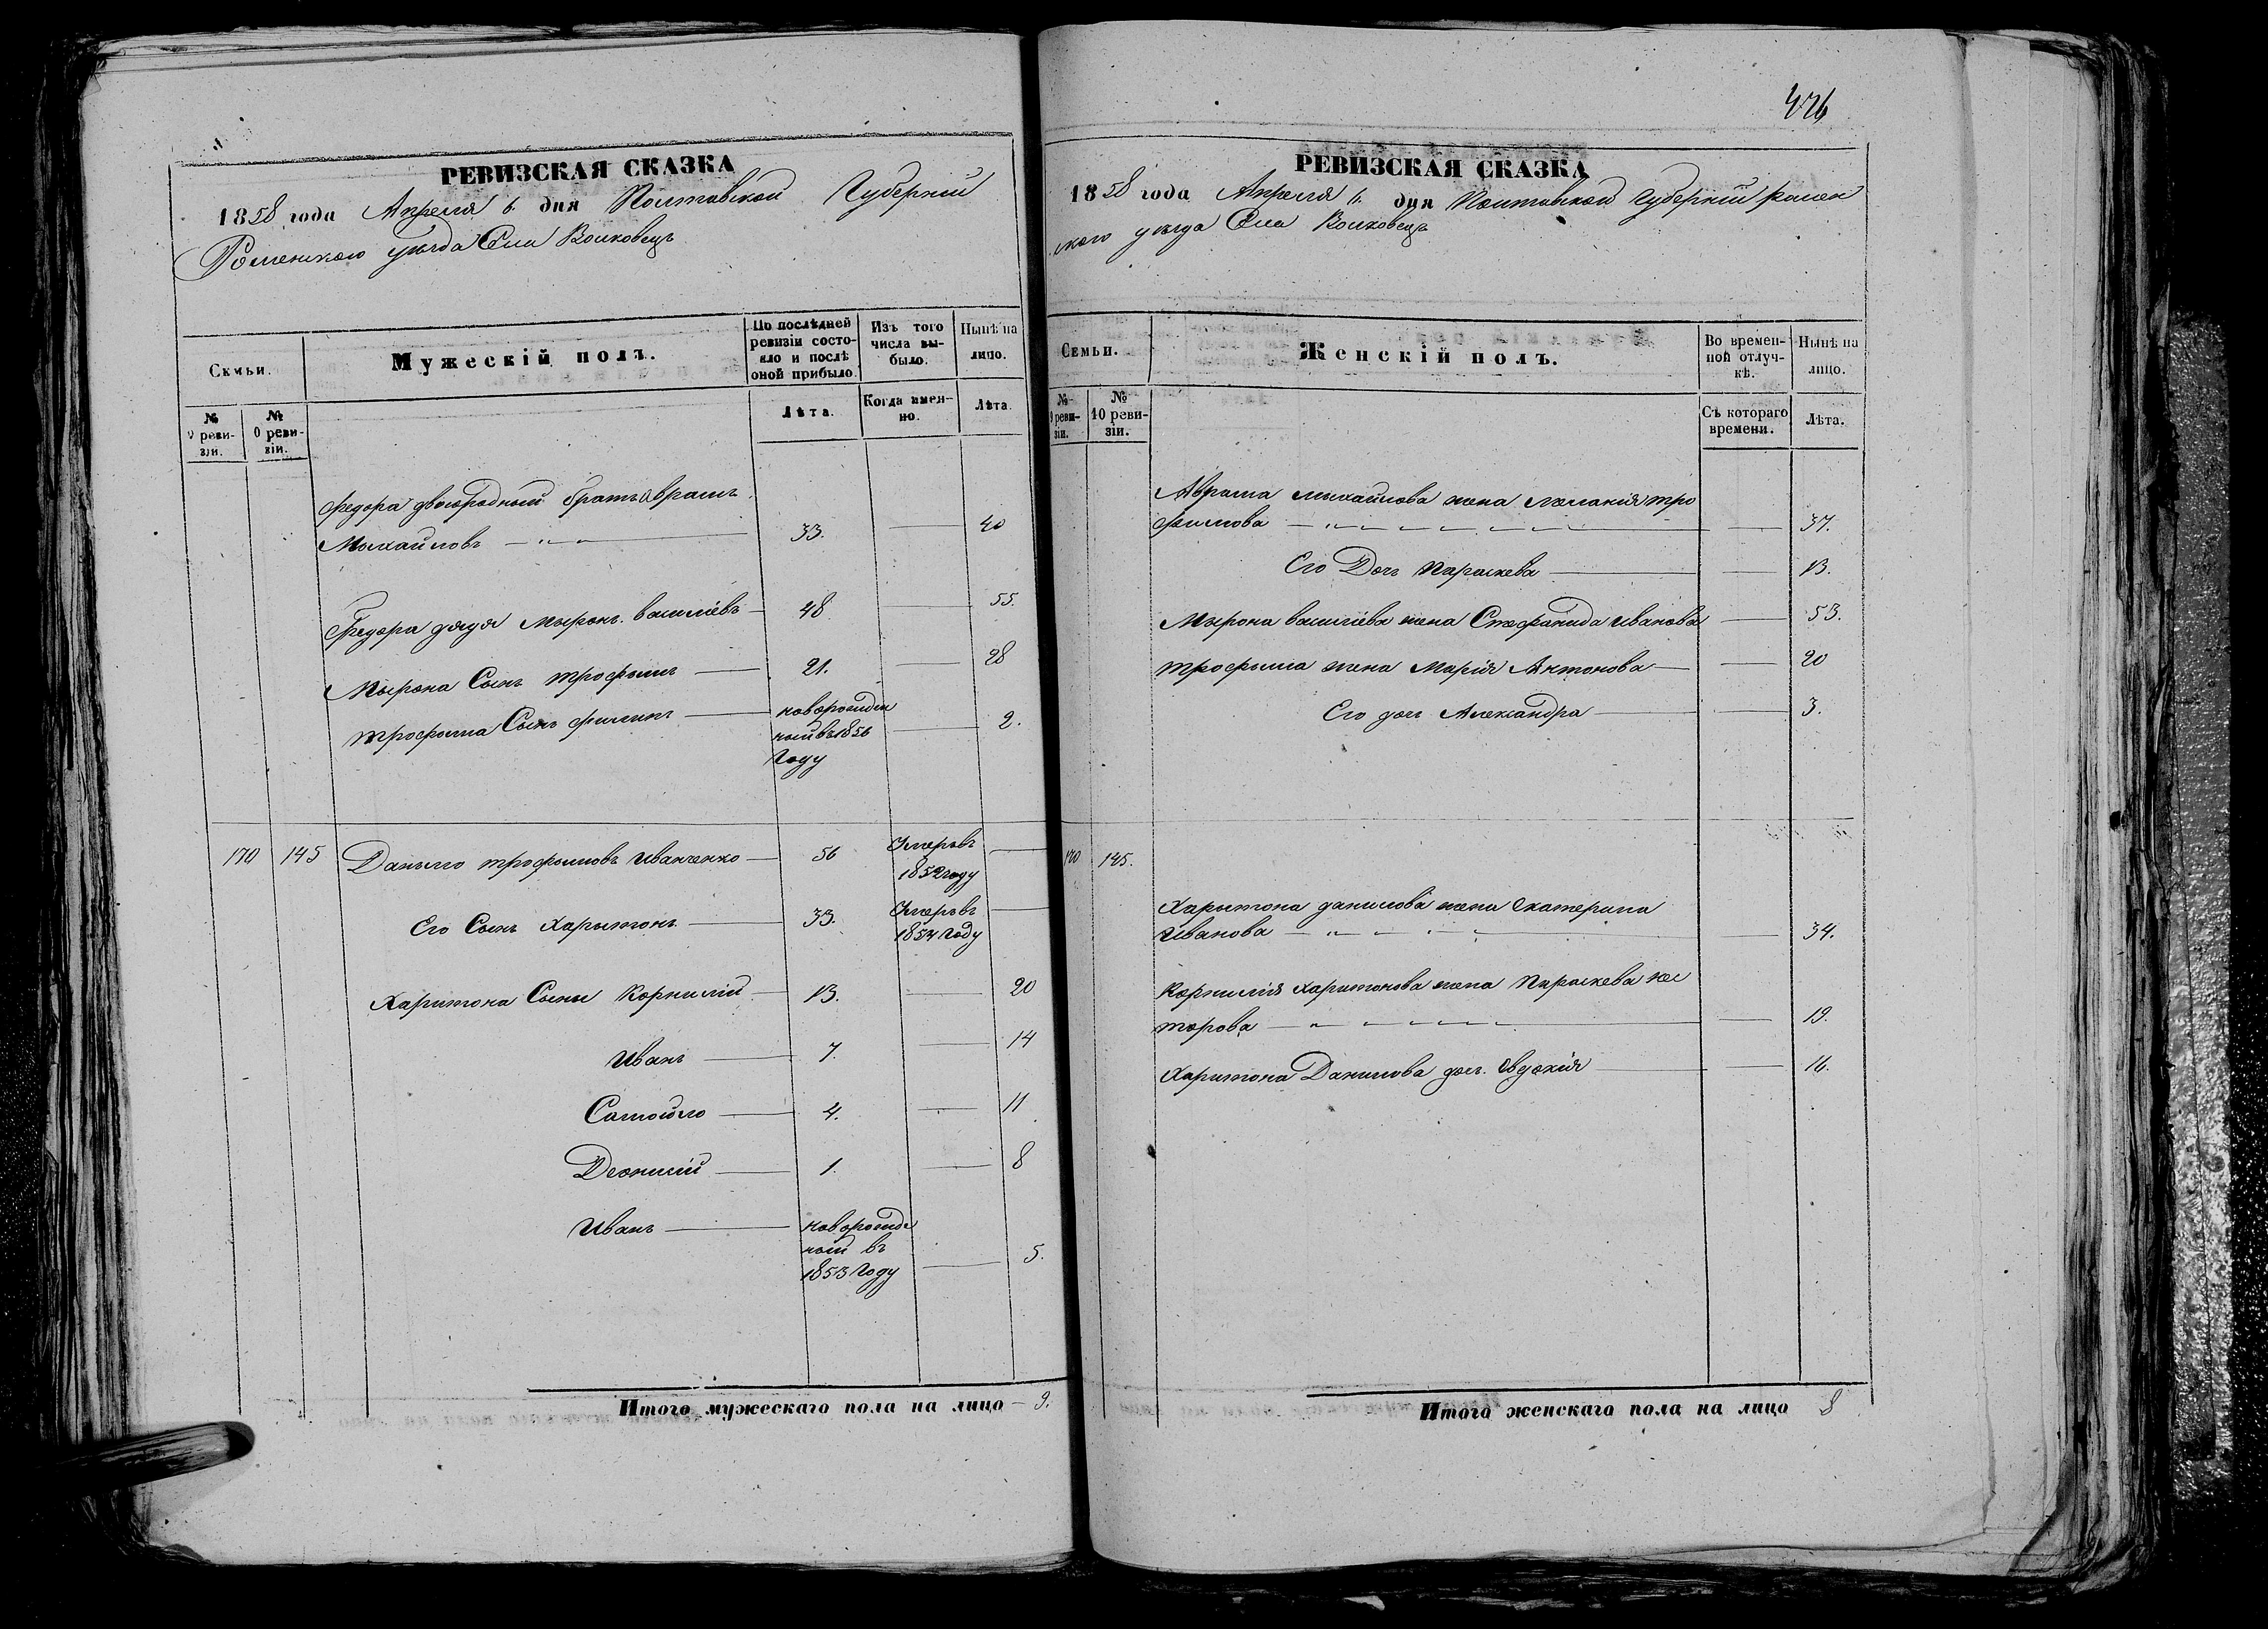 426
РЕВИЗСКАЯ СКАЗКА
1858 года Апреля 6. дня Полтавской Губерніи
Роменского уѣзда Села Волковецъ
Семьи.
Мужескій полъ.
По послѣдней ревизіи состояло и послѣ оной прибыло.
Изъ того числа выбыло.
Нынѣ на лицо.
№ 9 ревизіи.
№ 10 ревизіи.
Лѣта.
Когда именно.
Лѣта.
Федора двоюродный братъ Аврамъ
Михайловъ 33. 40
Федора дядя Мыронъ Васильевъ 48 55.
Мырона Сынъ Трофымъ 21. 28
Трофыма Сынъ Филипъ новорожден
ный въ 1856 2.
Году
170 145 Даныло Трофымовъ Иванченко 56 Умеръ въ
1852 году
Его Сынъ Харытонъ 33. Умеръ въ
1854 Году
Харитона Сыны Корнилій 13. 20
Иванъ 7. 14
Самойло 4. 11
Деонисій 1. 8
Иванъ новорожде
ный въ
1853 Году 5.
Итого мужескаго пола на лицо 9.
РЕВИЗСКАЯ СКАЗКА
1858 года Апреля 6. дня Полтавской Губерніи Ромен
ского уѣзда Села Волковецъ
Семьи.
Женскій полъ.
Во временной отлучкѣ.
Нынѣ на лицо.
№ 9 ревизіи.
№ 10 ревизіи.
Съ котораго времени.
Лѣта.
Аврама Михайлова жена Меланія Тро
фимова 37.
Его Дочь Параскева 13.
Мырона Васильева жена Стефанида Иванова 53.
Трофыма жена Марія Антонова 20
Его дочь Александра 3.
170 145.
Харытона Данилова жена Екатерина
Иванова 34.
Корнилія Харитонова жена Параскева Нес
торова 19.
Харитона Данилова доч. Евдокія 16.
Итого женскаго пола на лицо 8